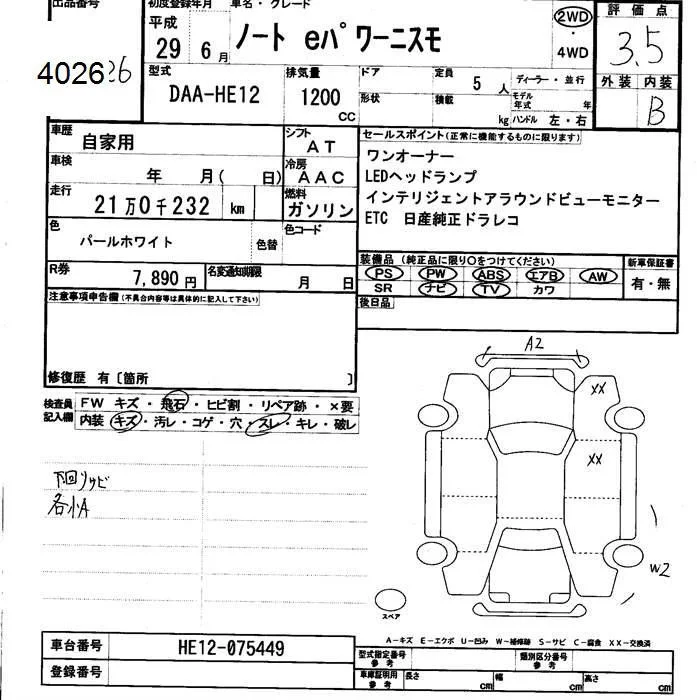 出品番号
初度登録年月
車名・グレード
評価点
平成
29 6月
ノート eパワーニスモ
2WD
・
4WD
3.5
40266
型式
DAA-HE12
排気量
1200
CC
ドア
定員 5 人
ディーラー・並行
形状
積載 kg
モデル年式 年
ハンドル 左・右
外装 内装
B
車歴 自家用
シフト AT
車検 年 月( 日)
冷房 AAC
走行 21万0千232 km
燃料 ガソリン
色 パールホワイト 色替
色コード
R券 7,890円
名変通知期限 月 日
セールスポイント(正常に機能するものに限ります)
ワンオーナー
LEDヘッドランプ
インテリジェントアラウンドビューモニター
ETC 日産純正ドラレコ
装備品 (純正品に限り○をつけてください)
PS PW ABS エアB AW
SR ナビ TV カワ
新車保証書
有・無
後日品
注意事項申告欄(不具合内容等は具体的に記入して下さい)
修復歴 有〔箇所 〕
検査員記入欄
FW キズ・飛石・ヒビ割・リペア跡・×要
内装 キズ・汚レ・コゲ・穴・スレ・キレ・破レ
下回りサビ
各小A
A2
XX
XX
W2
スペア
A-キズ E-エクボ U-凹み W-補修跡 S-サビ C-腐食 XX-交換済
車台番号 HE12-075449
登録番号
型式指定番号 参考
類別区分番号 参考
車庫証明用 参考
長さ cm
幅 cm
高さ cm